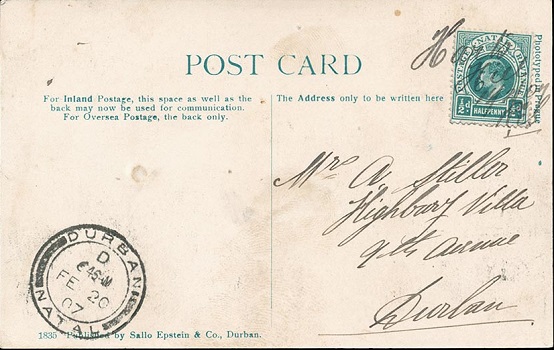 POST CARD
For Inland Postage, this space as well as the
back may now be used for communication.
For Oversea Postage, the back only.
The Address only to be written here
POSTAGE NATAL REVENUE
½d HALFPENNY ½d
Phototyped in Prague
Mrs A Miller
Highbury Villa
9th avenue
Durban
DURBAN
D
6 45 AM
FE 20
07
NATAL
1835 Published by Sallo Epstein & Co., Durban.